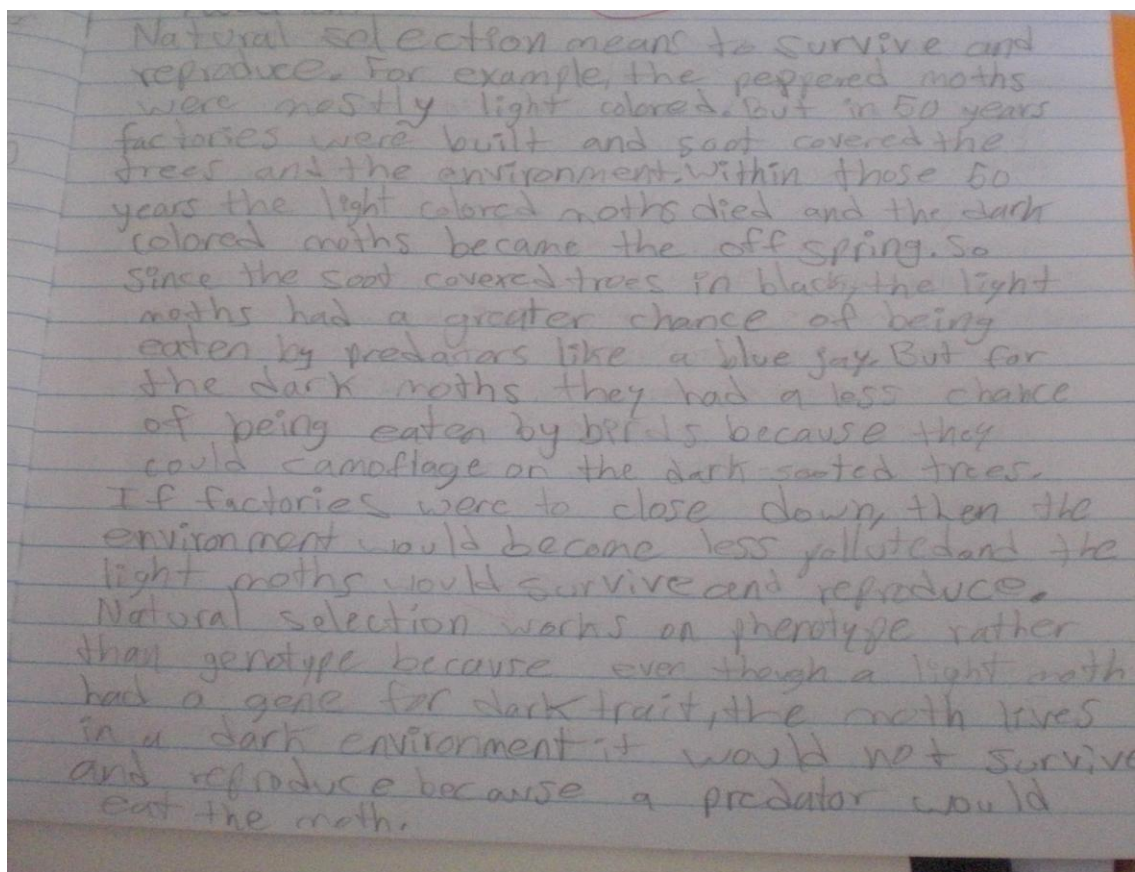 Natural selection means to survive and
reproduce. For example, the peppered moths
were mostly light colored. But in 50 years
factories were built and soot covered the
trees and the environment. Within those 50
years the light colored moths died and the dark
colored moths became the off spring. So
since the soot covered trees in black, the light
moths had a greater chance of being
eaten by predators like a blue jay. But for
the dark moths they had a less chance
of being eaten by birds because they
could camoflage on the dark sooted trees.
If factories were to close down, then the
environment would become less polluted and the
light moths would survive and reproduce.
Natural selection works on phenotype rather
than genotype because even though a light moth
had a gene for dark trait, the moth lives
in a dark environment it would not survive
and reproduce because a predator would
eat the moth.